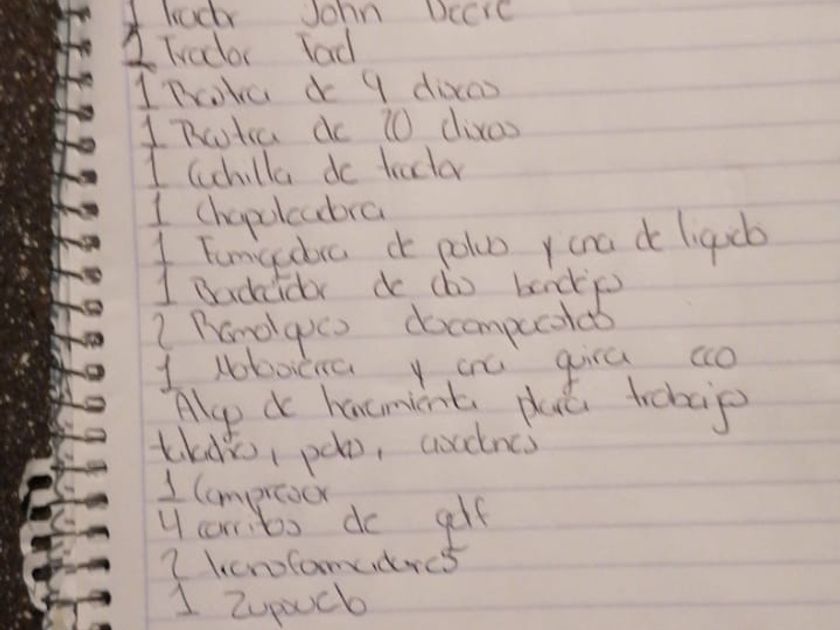 1 Tractor John Deere
1 Tractor Ford
1 Rastra de 9 discos
1 Rastra de 20 discos
1 Cuchilla de tractor
1 Chapuleadora
1 Fumigadora de polvo y una de liquido
1 Bordeador de dos bordejo
2 Remolques descompuestos
1 Motosierra y una
Algo de herramienta para trabajo
taladro, palas, azadones
1 Compresor
4 carritos de golf
2 transformadores
1